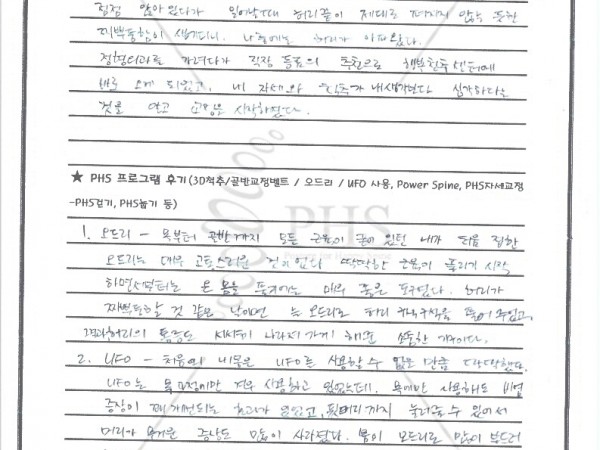 점점 앉아있다가 일어날때 허리끝이 제대로 펴지지 않는 듯한
찌뿌둥함이 생기더니, 나중에는 허리가 아파왔다.
정형외과를 가려다가 직장 동료의 추천으로 행복한척추센터에
바로 오게 되었고, 내 자세와 척추가 내생각보다 심각하다는
것을 알고 교정을 시작하였다.
★ PHS 프로그램 후기(3D척추/골반교정벨트 / 오드리 / UFO 사용, Power Spine, PHS자세교정
-PHS걷기, PHS눕기 등)
PHS
1. 오드리 - 목부터 골반까지 모든 근육이 굳어 있던 내가 처음 접한
오드리는 매우 고통스러운 것이었다. 딱딱한 근육이 풀리기 시작
하면서부터는 온 몸을 풀기에는 매우 좋은 도구였다. 허리가
찌뿌둥할 것 같은 날이면 늘 오드리로 허리 구석구석을 풀어 주었고,
허리의 통증도 서서히 나아져가게 해준 소중한 기구이다.
2. UFO - 처음의 내 목은 UFO를 사용할 수 없을 만큼 딱딱했다.
UFO는 목 교정에만 겨우 사용하고 있었는데, 목에만 사용해도 비염
증상이 개선되는 효과가 있었고, 뒷머리까지 눌러줄 수 있어서
머리가 무거운 증상도 많이 사라졌다. 몸이 오드리로 많이 부드러